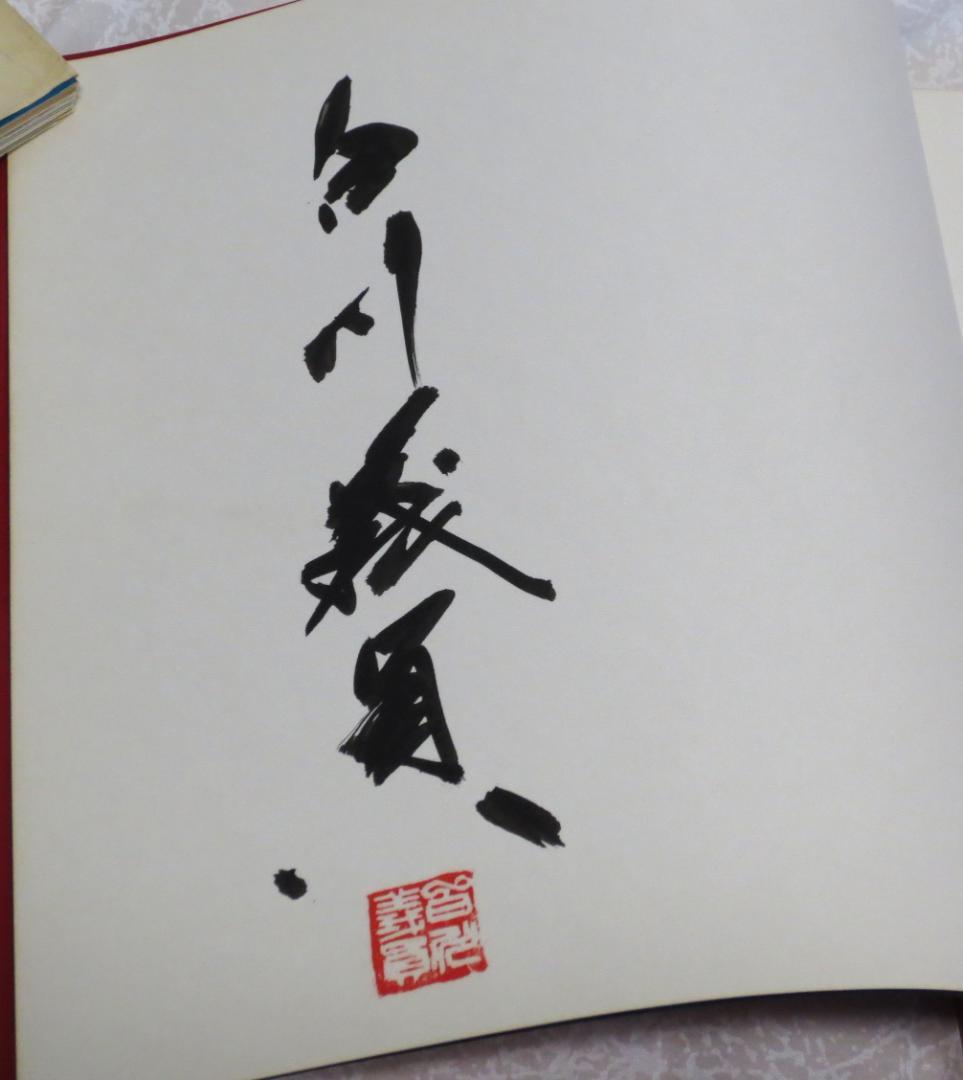 白川義員
白川
義員